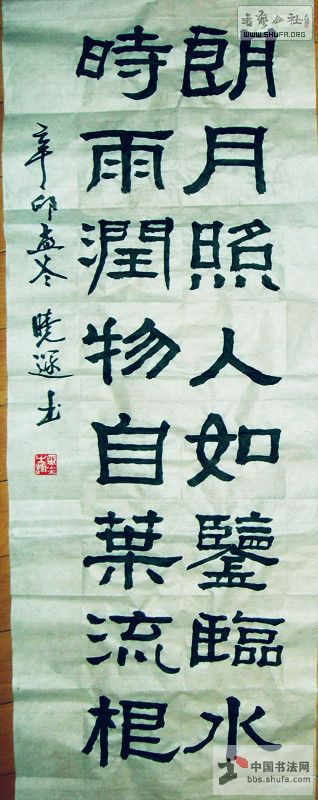 朗月照人如鑒臨水
時雨潤物自葉流根
辛卯孟冬 曉
书艺公社
WWW.SHUFA.ORG
中国书法网
bbs.shufa.com